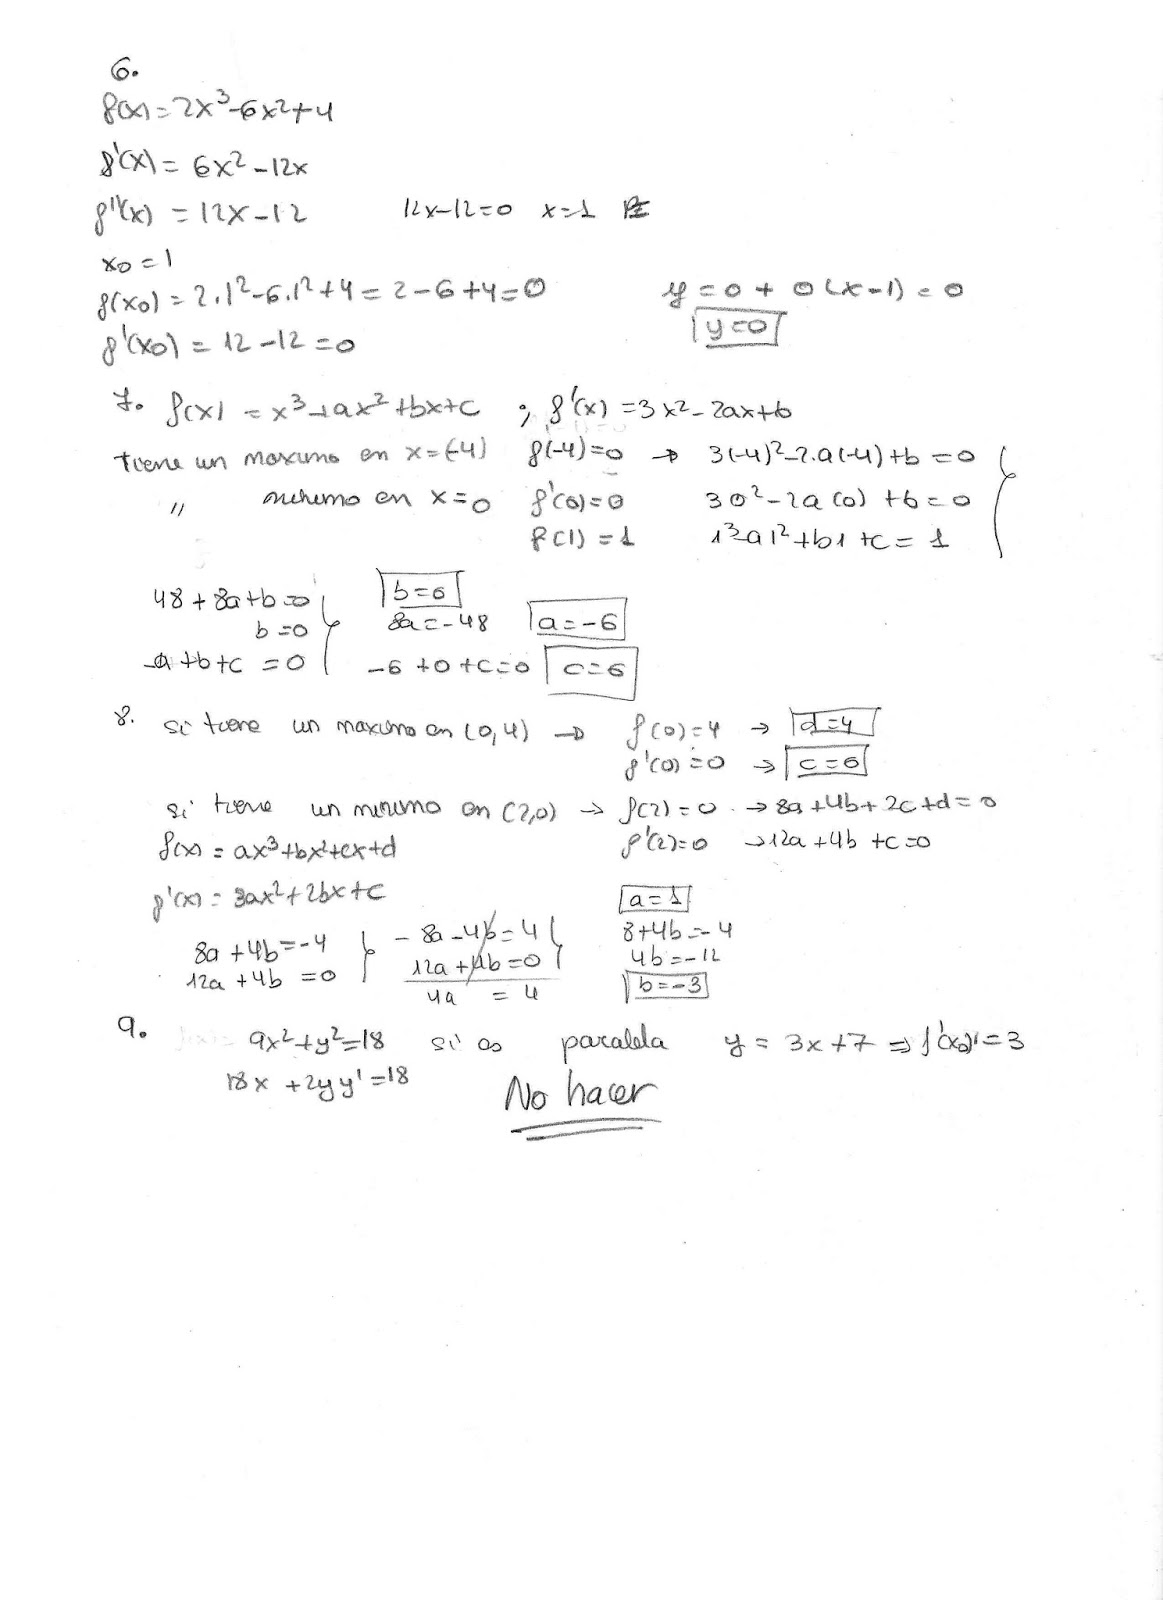 6.
f(x) = 2x³-6x²+4
f'(x) = 6x² -12x
f''(x) = 12x-12 12x-12=0 x=1
x₀ = 1
f(x₀) = 2.1²-6.1²+4 = 2-6+4=0 y = 0 + 0(x-1) = 0
f'(x₀) = 12-12 = 0 y=0
7. f(x) = x³-ax²+bx+c ; f'(x) = 3x²-2ax+b
tiene un maximo en x=(-4) f(-4)=0 → 3(-4)²-2.a(-4)+b=0
" minimo en x=0 f'(0)=0 3 0²-2a(0)+b=0
f(1)=1 1³-a1²+b1+c=1
48+8a+b=0 b=0
b=0 8a=-48 a=-6
-a+b+c=0 -6+0+c=0 c=6
8. si tiene un maximo en (0,4) → f(0)=4 → d=4
f'(0)=0 → c=0
si tiene un minimo en (2,0) → f(2)=0 → 8a+4b+2c+d=0
f(x) = ax³+bx²+cx+d f'(2)=0 → 12a+4b+c=0
f'(x) = 3ax²+2bx+c a=1
8a+4b=-4 -8a-4b=4 8+4b=-4
12a+4b=0 12a+4b=0 4b=-12
4a = 4 b=-3
9. 9x²+y²=18 si es paralela y = 3x+7 ⇒ f'(x₀)=3
18x+2yy'=18
No hacer